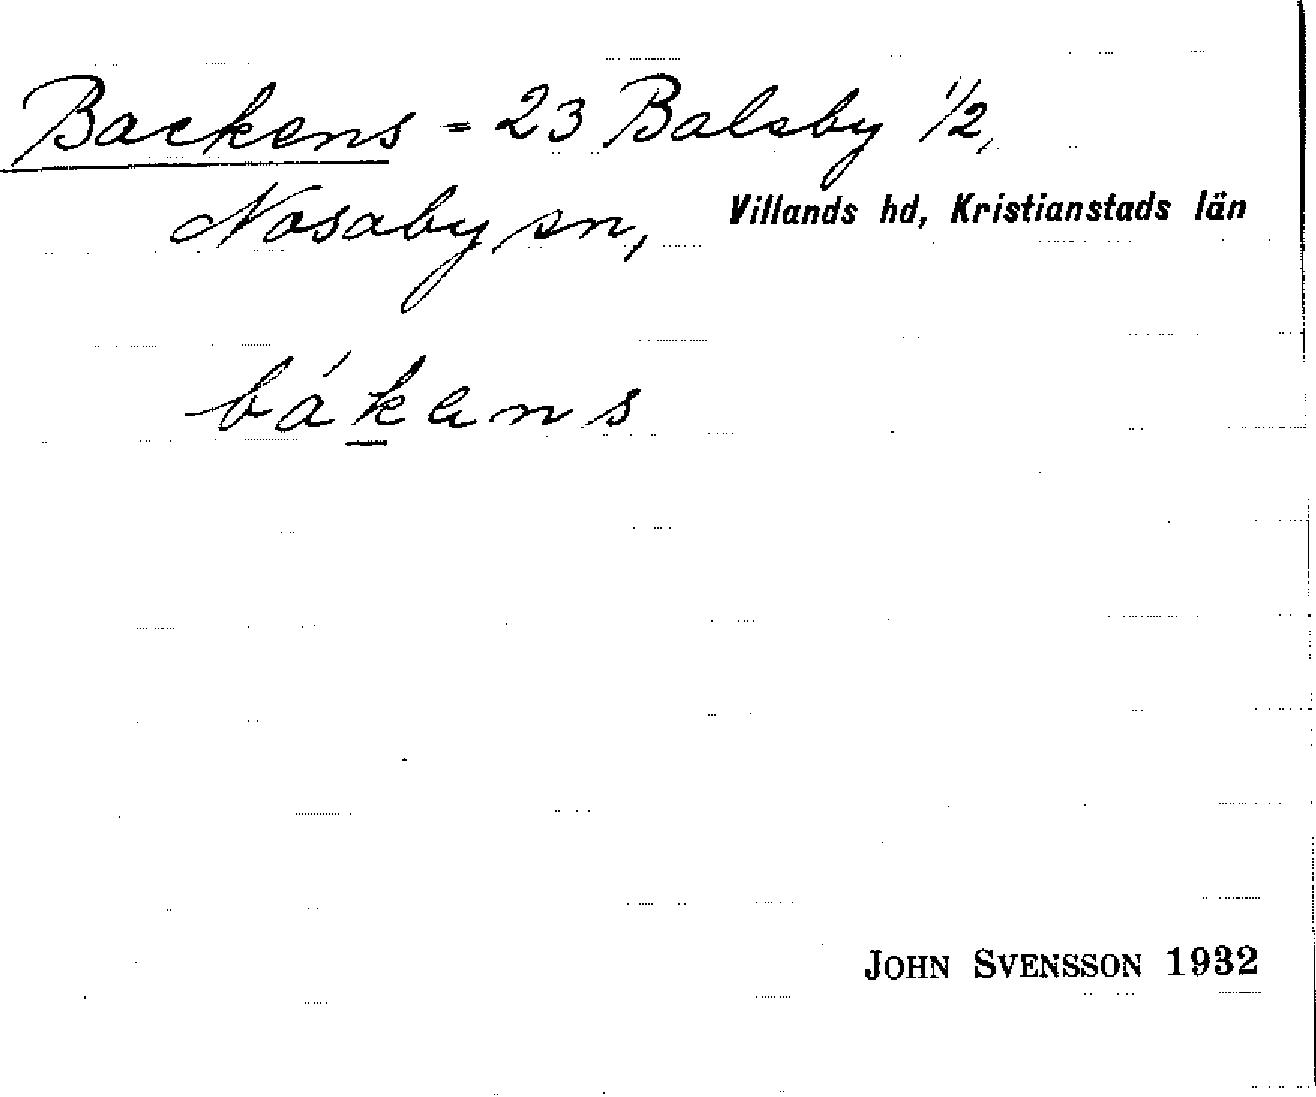 Backens = 23 Balsby 1/2,
Nosaby sn, Villands hd, Kristianstads län
bákans
JOHN SVENSSON 1932